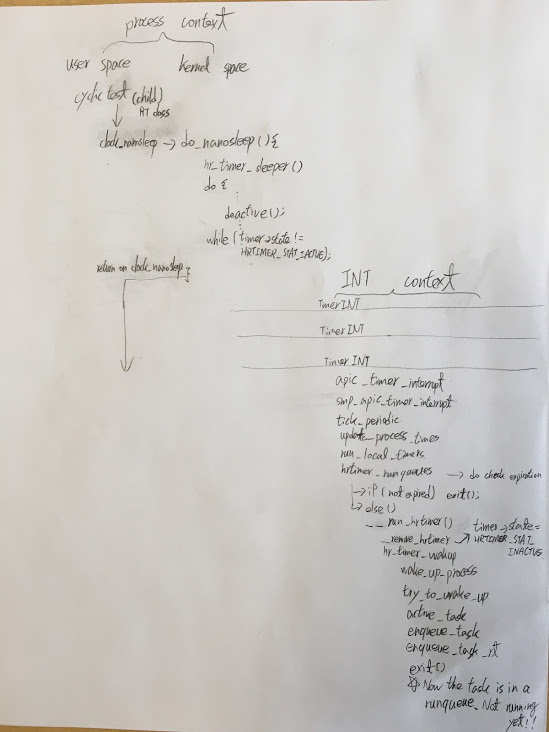 process context
user space kernel space
cyclic test (child)
RT class
clock_nanosleep → do_nanosleep(){
hr_timer_sleeper()
do {
⋮
deactive();
while (timer→state !=
HRTIMER_STAT_INACTIVE);
return on clock_nanosleep }
INT context
Timer INT
Timer INT
Timer INT
apic_timer_interrupt
smp_apic_timer_interrupt
tick_periodic
update_process_times
run_local_timers
hrtimer_runqueues → do check expiration
→ if (not expired) exit();
→ else()
__run_hrtimer() timer→state=
_remove_hrtimer ↗ HRTIMER_STAT_
INACTIVE
hr_timer_wakup
wake_up_process
try_to_wake_up
active_task
enqueue_task
enqueue_task_rt
exit()
☆ Now the task is in a
runqueue. Not running
yet!!